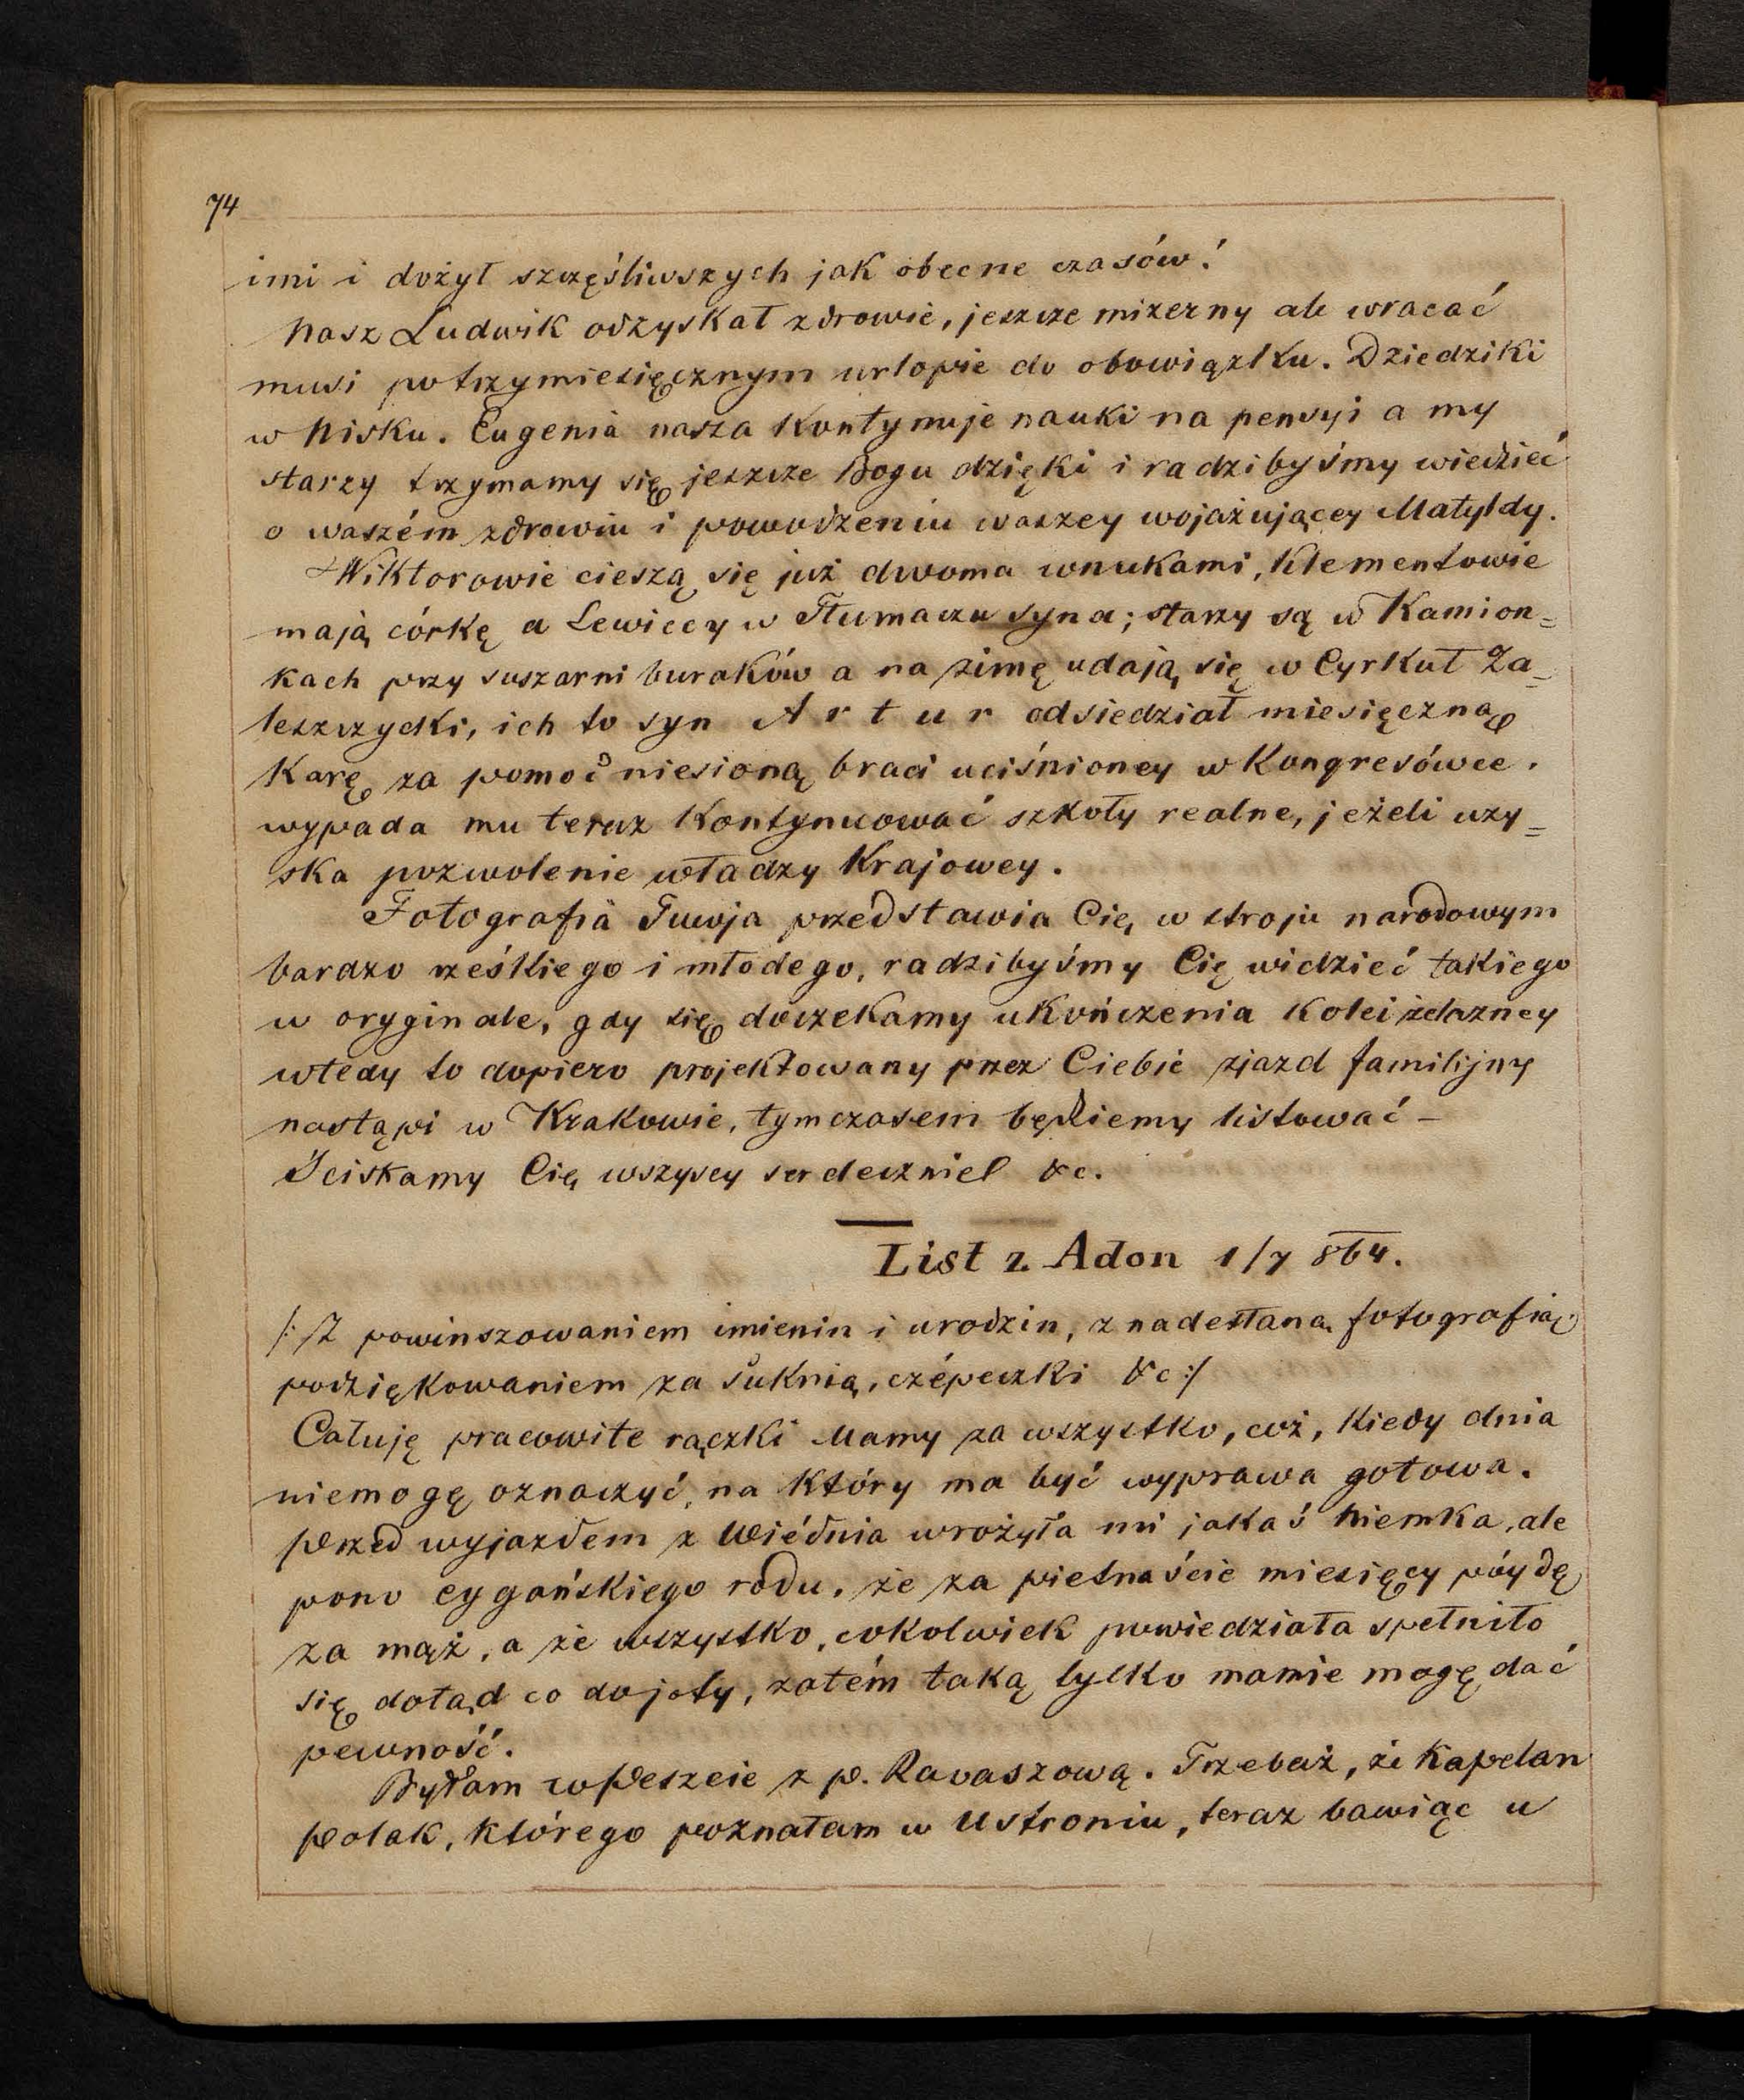 74
imi i dożył szczęśliwszych jak obecne czasów!
Nasz Ludwik odzyskał zdrowie, jeszcze mizerny ale wracać
musi po trzymiesięcznym urlopie do obowiązku. Dziedziki
w Nisku. Eugenia nasza kontynuje nauki na pensyi a my
starzy trzymamy się jeszcze Bogu dzięki i radzibyśmy wiedzieć
o waszém zdrowiu i powodzeniu waszey wojażującey Matyldy.
Wiktorowie cieszą się już dwoma wnukami, Klementowie
mają córkę a Lewiccy w Tłumaczu syna; starzy są w Kamion=
kach przy suszarni buraków a na zimę udają się w Cyrkuł Za=
leszczycki, ich to syn Artur odsiedział miesięczną
karę za pomoc niesioną braci uciśnioney w Kongresówce.
wypada mu teraz kontynuować szkoły realne, jeżeli uzy=
ska pozwolenie władzy krajowey.
Fotografia Twoja przedstawia Cię w stroju narodowym
bardzo rześkiego i młodego, radzibyśmy Cię widzieć takiego
w oryginale, gdy się doczekamy ukończenia kolei żelazney
wtedy to dopiero projektowany przez Ciebie zjazd familijny
nastąpi w Krakowie, tymczasem będziemy listować –
Ściskamy Cię wszyscy serdecznie &c.
List z Adon 1/7 864.
/: Z powinszowaniem imienin i urodzin, z nadesłaną fotografią,
podziękowaniem za suknią, czépeczki &c :/
Całuję pracowite rączki Mamy za wszystko, coż, kiedy dnia
niemogę oznaczyć, na który ma być wyprawa gotowa.
Przed wyjazdem z Wiédnia wrożyła mi jakaś Niemka, ale
pono cygańskiego rodu, że za pietnaście miesięcy póydę
za mąż, a że wszystko, cokolwiek powiedziała spełniło
się dotąd co do joty, zatém taką tylko mamie mogę dać
pewność.
Byłam w Peszcie z p. Ravaszową. Trzebaż, że Kapelan
Polak, którego poznałam w Ustroniu, teraz bawiąc w